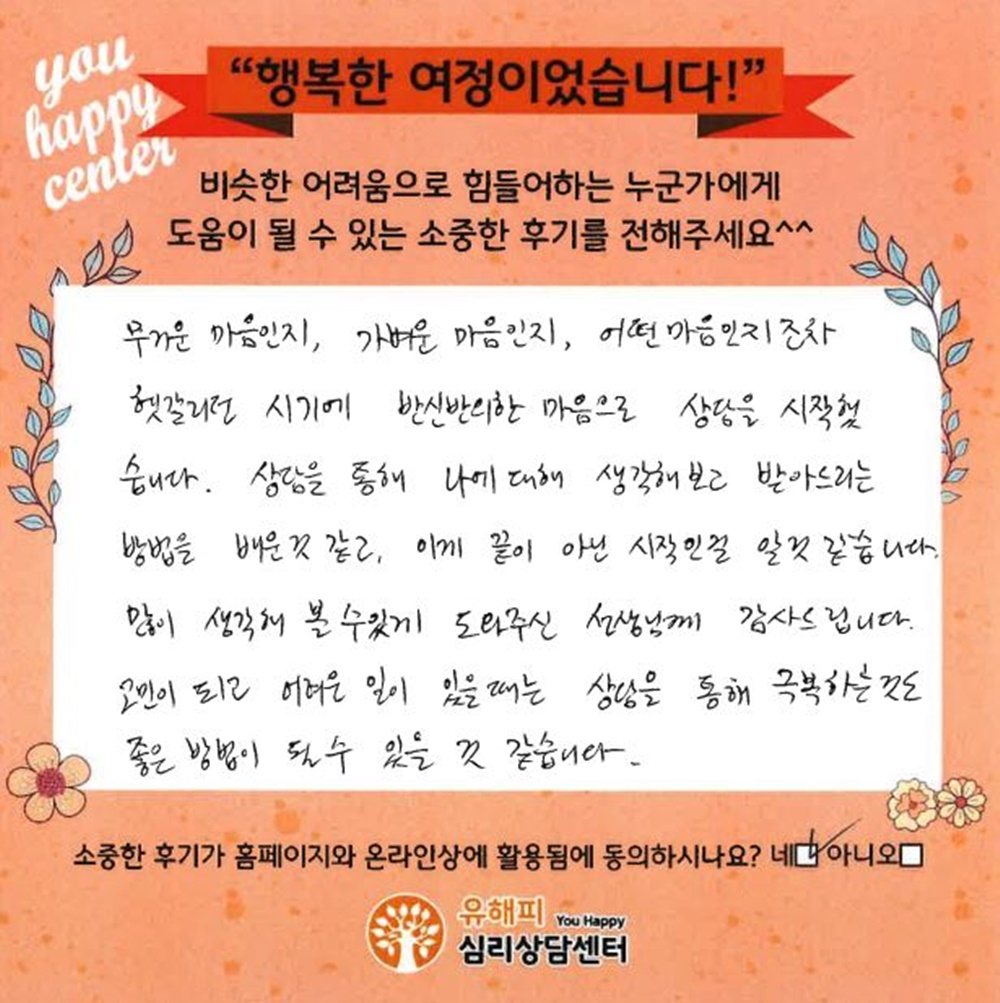 you
happy
center
“행복한 여정이었습니다!”
비슷한 어려움으로 힘들어하는 누군가에게
도움이 될 수 있는 소중한 후기를 전해주세요^^
무거운 마음인지, 가벼운 마음인지, 어떤 마음인지 조차
헷갈리던 시기에 반신반의한 마음으로 상담을 시작했
습니다. 상담을 통해 나에 대해 생각해보고 받아드리는
방법을 배운것 같고, 이게 끝이 아닌 시작인걸 알것 같습니다.
많이 생각해 볼 수있게 도와주신 선생님께 감사드립니다.
고민이 되고 어려운 일이 있을때는 상담을 통해 극복하는것도
좋은 방법이 될 수 있을 것 같습니다.
소중한 후기가 홈페이지와 온라인상에 활용됨에 동의하시나요? 네☑ 아니오☐
유해피 You Happy
심리상담센터